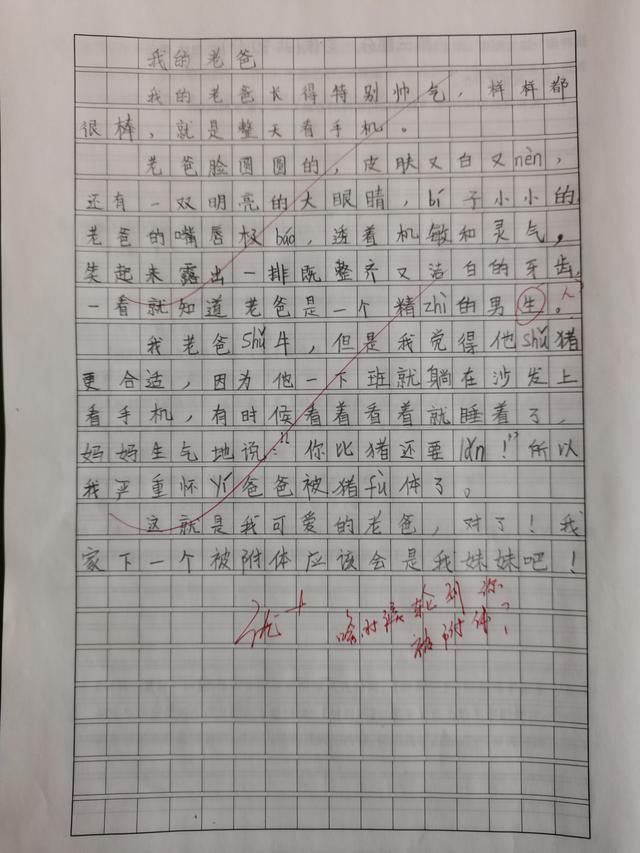 我的老爸
我的老爸长得特别帅气，样样都
很棒，就是整天看手机。
老爸脸圆圆的，皮肤又白又nèn，
还有一双明亮的大眼睛，bí子小小的
老爸的嘴唇极báo，透着机敏和灵气，
笑起来露出一排既整齐又洁白的牙齿，
一看就知道老爸是一个精zhì的男生。人
我老爸shǔ牛，但是我觉得他shǔ猪
更合适，因为他一下班就躺在沙发上
看手机，有时候看着看着就睡着了，
妈妈生气地说：“你比猪还要lǎn！”所以
我严重怀yí爸爸被猪fù体了。
这就是我可爱的老爸，对了！我
家下一个被附体应该会是我妹妹吧！
优+
啥时候轮到你
被附体？